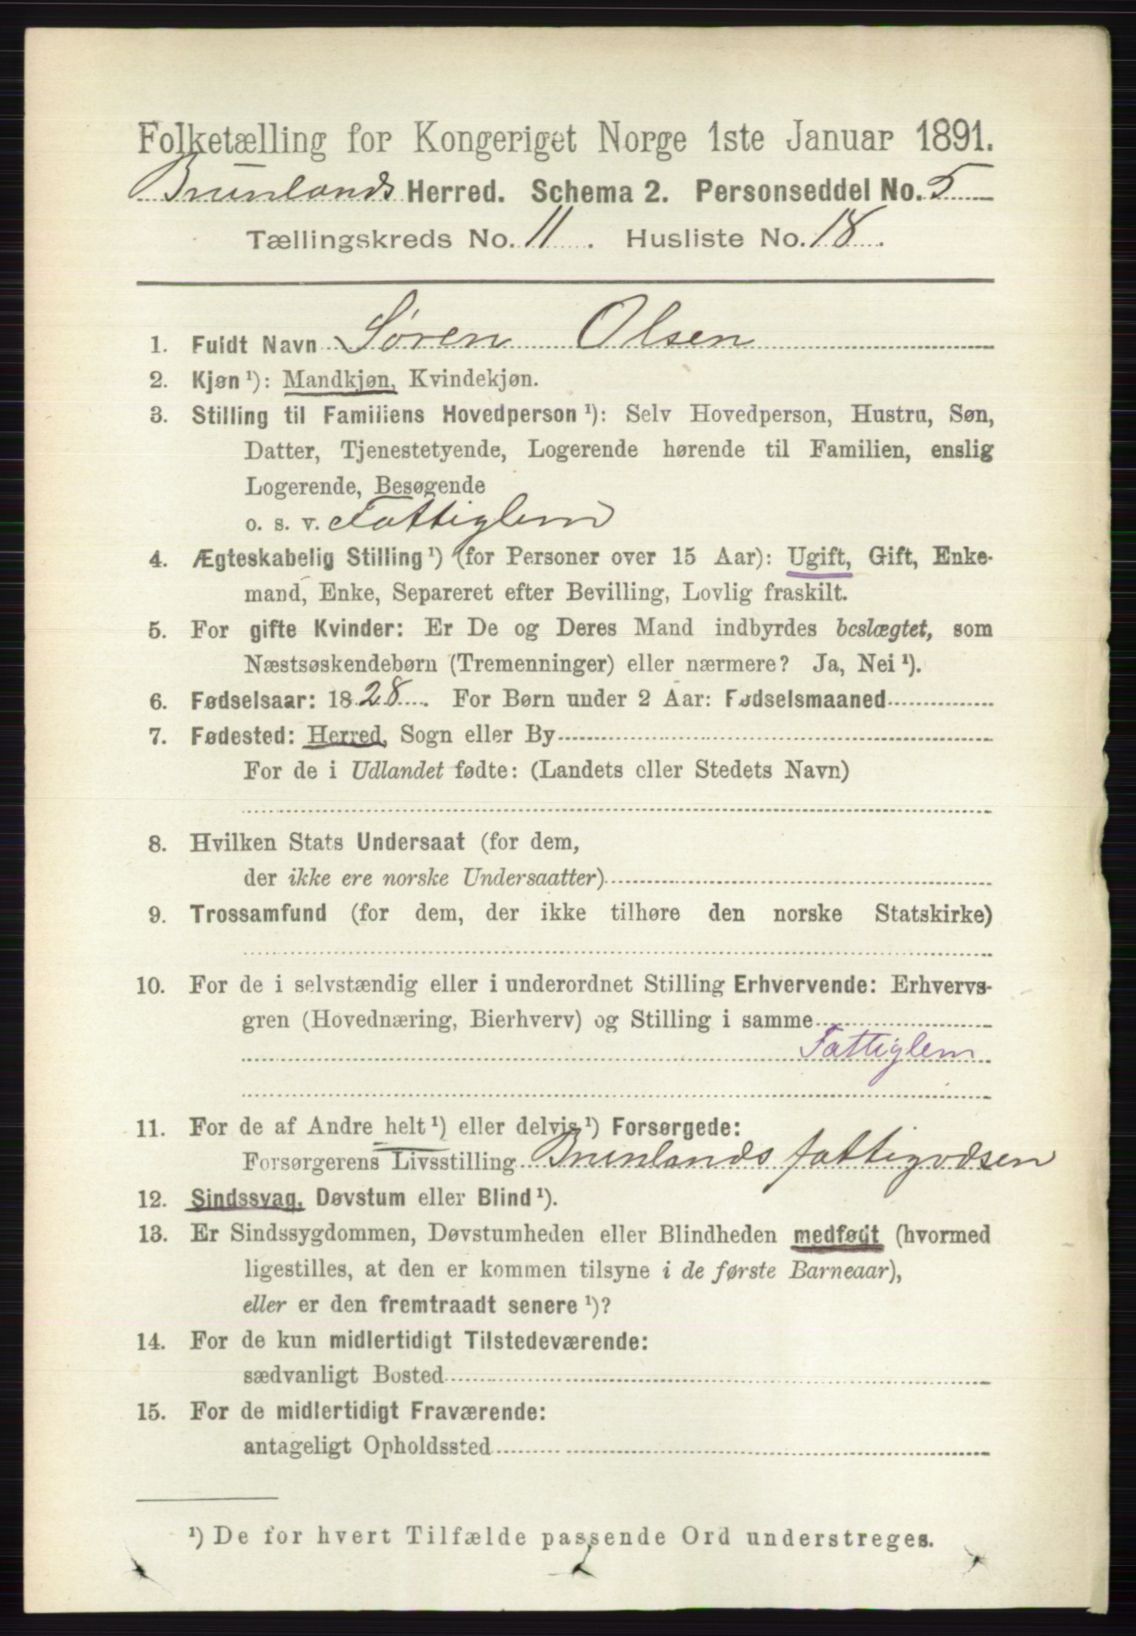 Folketælling for Kongeriget Norge 1ste Januar 1891.
Brunlands Herred. Schema 2. Personseddel No. 5
Tællingskreds No. 11. Husliste No. 18.
1. Fuldt Navn Søren Olsen
2. Kjøn ¹): Mandkjøn, Kvindekjøn.
3. Stilling til Familiens Hovedperson ¹): Selv Hovedperson, Hustru, Søn,
Datter, Tjenestetyende, Logerende hørende til Familien, enslig
Logerende, Besøgende
o. s. v. Fattiglem
4. Ægteskabelig Stilling ¹) (for Personer over 15 Aar): Ugift, Gift, Enke-
mand, Enke, Separeret efter Bevilling, Lovlig fraskilt.
5. For gifte Kvinder: Er De og Deres Mand indbyrdes beslægtet, som
Næstsøskendebørn (Tremenninger) eller nærmere? Ja, Nei ¹).
6. Fødselsaar: 1828. For Børn under 2 Aar: Fødselsmaaned
7. Fødested: Herred, Sogn eller By
For de i Udlandet fødte: (Landets eller Stedets Navn)
8. Hvilken Stats Undersaat (for dem,
der ikke ere norske Undersaatter)
9. Trossamfund (for dem, der ikke tilhøre den norske Statskirke)
10. For de i selvstændig eller i underordnet Stilling Erhvervende: Erhvervs-
gren (Hovednæring, Bierhverv) og Stilling i samme
Fattiglem
11. For de af Andre helt ¹) eller delvis ¹) Forsørgede:
Forsørgerens Livsstilling Brunlands fattigvæsen
12. Sindssvag, Døvstum eller Blind ¹).
13. Er Sindssygdommen, Døvstumheden eller Blindheden medfødt (hvormed
ligestilles, at den er kommen tilsyne i de første Barneaar),
eller er den fremtraadt senere ¹)?
14. For de kun midlertidigt Tilstedeværende:
sædvanligt Bosted
15. For de midlertidigt Fraværende:
antageligt Opholdssted
¹) De for hvert Tilfælde passende Ord understreges.